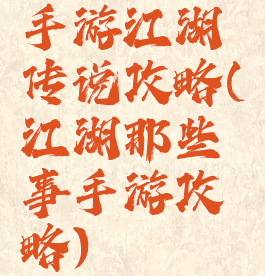 手游江湖
传说攻略(
江湖那些
事手游攻
略)